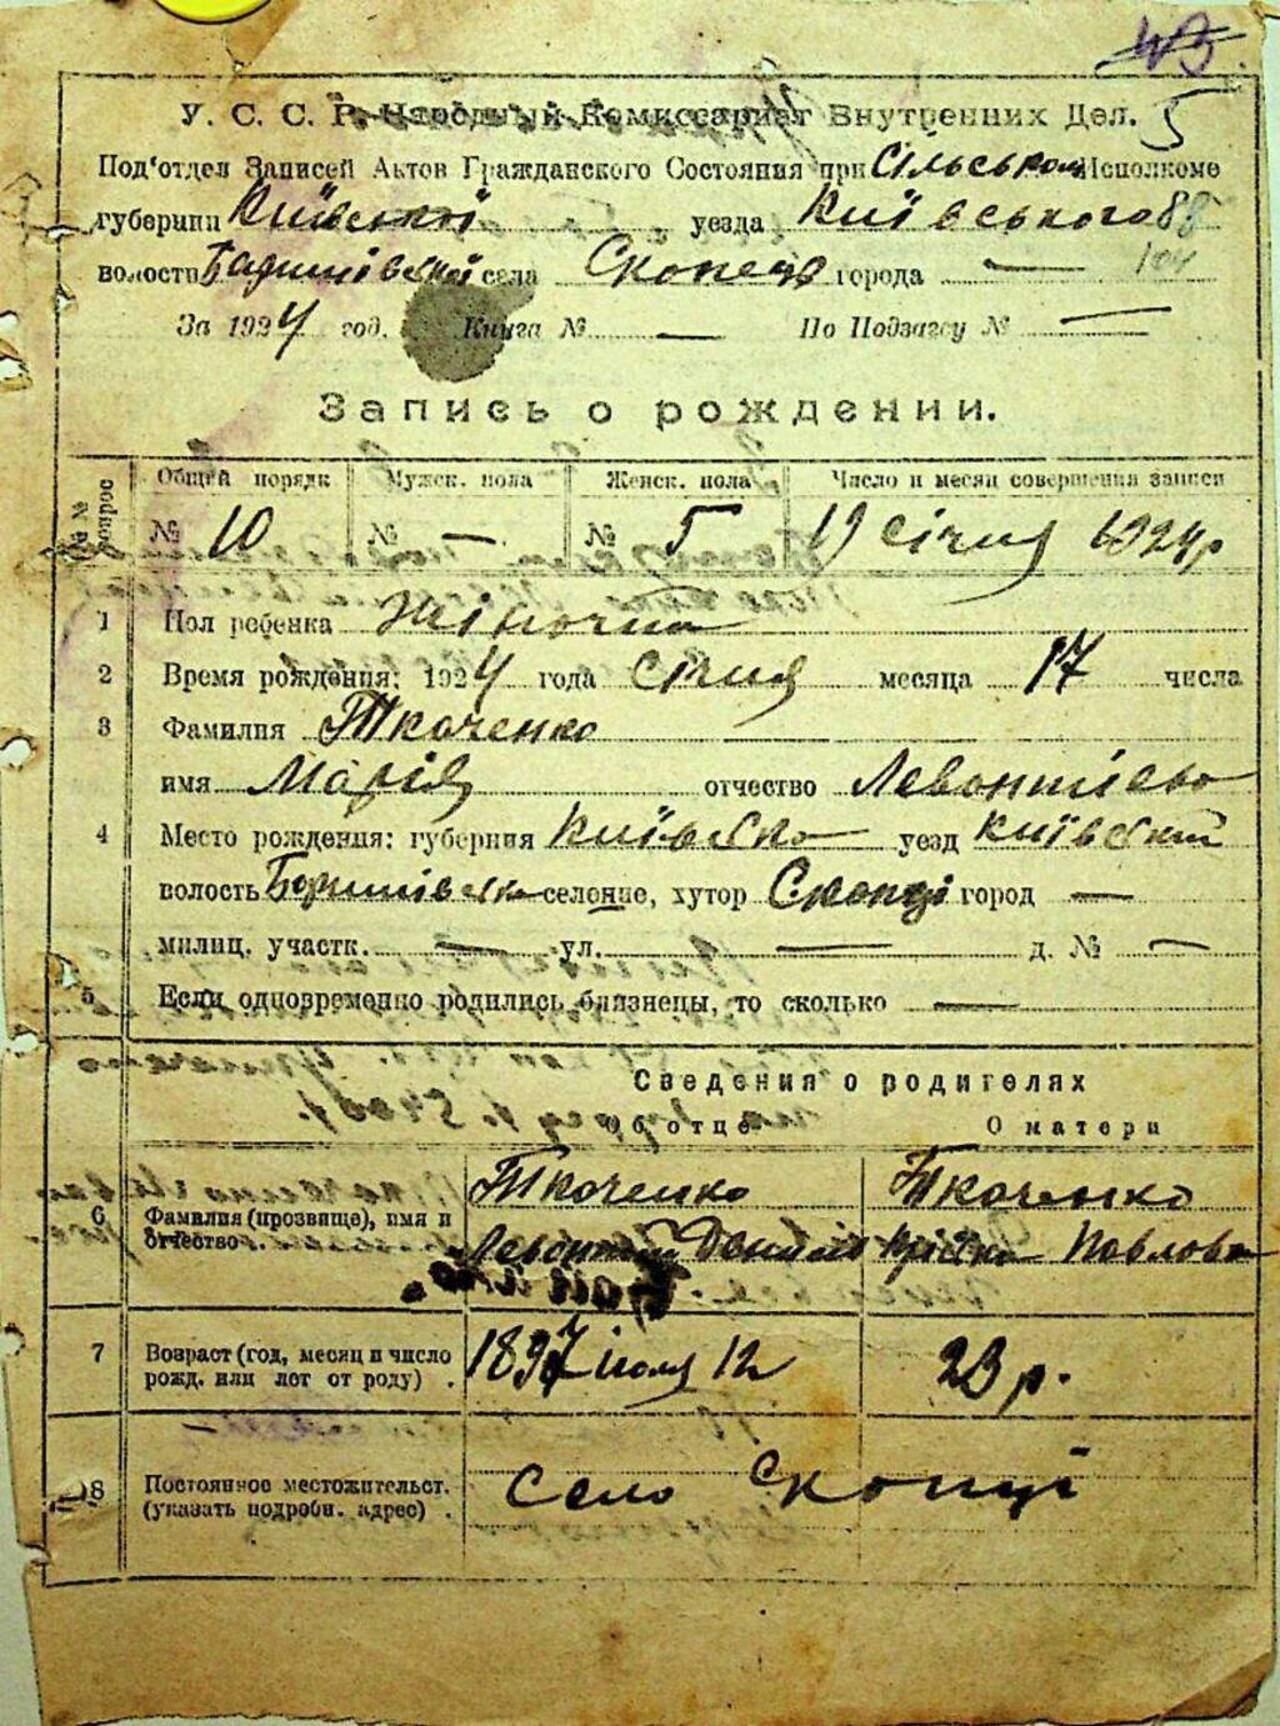 5
У. С. С. Р. Народный Комиссариат Внутренних Дел.
Под'отдел Записей Актов Гражданского Состояния при Сільськом Исполкоме
губернии Київської уезда Київського 88
волости Баришівської села Скопець города — 104
За 1924 год. Книга № — По Подзагсу № —
Запись о рождении.
№№ вопрос Общей порядк Мужск. пола Женск. пола Число и месяц совершения записи
№ 10 № — № 5 19 січня 1924 р
1 Пол ребенка Жіноча
2 Время рождения: 1924 года січня месяца 17 числа
3 Фамилия Ткаченко
имя Марія отчество Левонтієва
4 Место рождения: губерния Київска уезд Київский
волость Баришівска селение, хутор Скопці город —
милиц. участк. — ул. — д. № —
5 Если одновременно родились близнецы, то сколько —
Сведения о родителях
Об отце О матери
Ткаченко Ткаченко
6 Фамилия (прозвище), имя и
отчество . . Левонтий Данило Павлова
7 Возраст (год, месяц и число
рожд. или лет от роду) . 1897 июля 12 23 р.
8 Постоянное местожительст.
(указать подробн. адрес) . Село Скопці